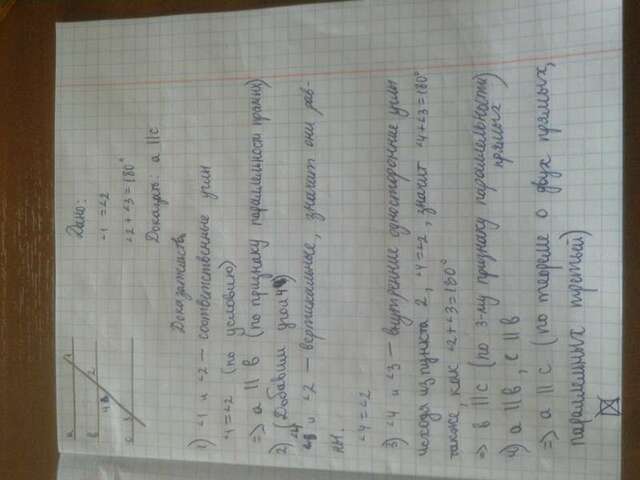 a
1
b
2
4
c
3
Дано:
∠1 = ∠2
∠2 + ∠3 = 180°
Доказать: a || c
Доказательство
1) ∠1 и ∠2 — соответственные углы
∠1 = ∠2 (по условию)
=> a || b (по признаку параллельности прямых)
2) (Добавим угол 4)
∠4 и ∠2 — вертикальные, значит они рав-
ны.
∠4 = ∠2
3) ∠4 и ∠3 — внутренние односторонние углы
исходя из пункта 2, ∠4 = ∠2, значит ∠4 + ∠3 = 180°
также, как ∠2 + ∠3 = 180°
=> b || c (по 3-му признаку параллельности
прямых)
4) a || b, c || b
=> a || c (по теореме о двух прямых,
параллельных третьей)